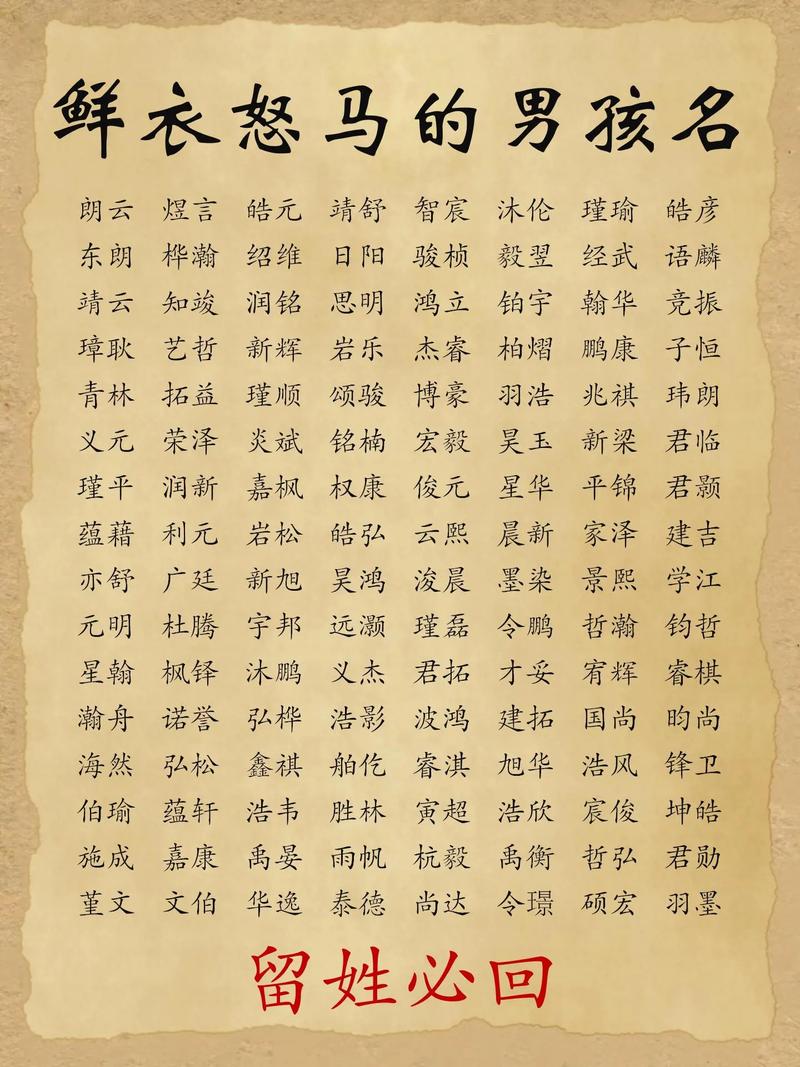 鲜衣怒马的男孩名
朗云 煜言 皓元 靖舒 智宸 沐伦 瑾瑜 皓彦
东朗 桦瀚 绍维 日阳 骏桢 毅翌 经武 语麟
靖云 知竣 润铭 思明 鸿立 铂宇 翰华 竞振
璋耿 艺哲 新辉 岩乐 杰睿 柏熠 鹏康 子恒
青林 拓益 瑾顺 颂骏 博豪 羽浩 兆祺 玮朗
义元 荣泽 炎斌 铭楠 宏毅 昊玉 新梁 君临
瑾平 润新 嘉枫 权康 俊元 星华 平锦 君颢
蕴藉 利元 岩松 皓弘 云熙 晨新 家泽 建吉
亦舒 广廷 新旭 昊鸿 浚晨 墨染 景熙 学江
元明 杜腾 宇邦 远灏 瑾磊 令鹏 哲瀚 钧哲
星翰 枫铎 沐鹏 义杰 君拓 才妥 宥辉 睿棋
瀚舟 诺誉 弘桦 浩影 波鸿 建拓 国尚 昀尚
海然 弘松 鑫祺 舶仡 睿淇 旭华 浩风 锋卫
伯瑜 蕴轩 浩韦 胜林 寅超 浩欣 宸俊 坤皓
施成 嘉康 禹晏 雨帆 杭毅 禹衡 哲弘 君勋
堇文 文伯 华逸 泰德 尚达 令璟 硕宏 羽墨
留姓必回